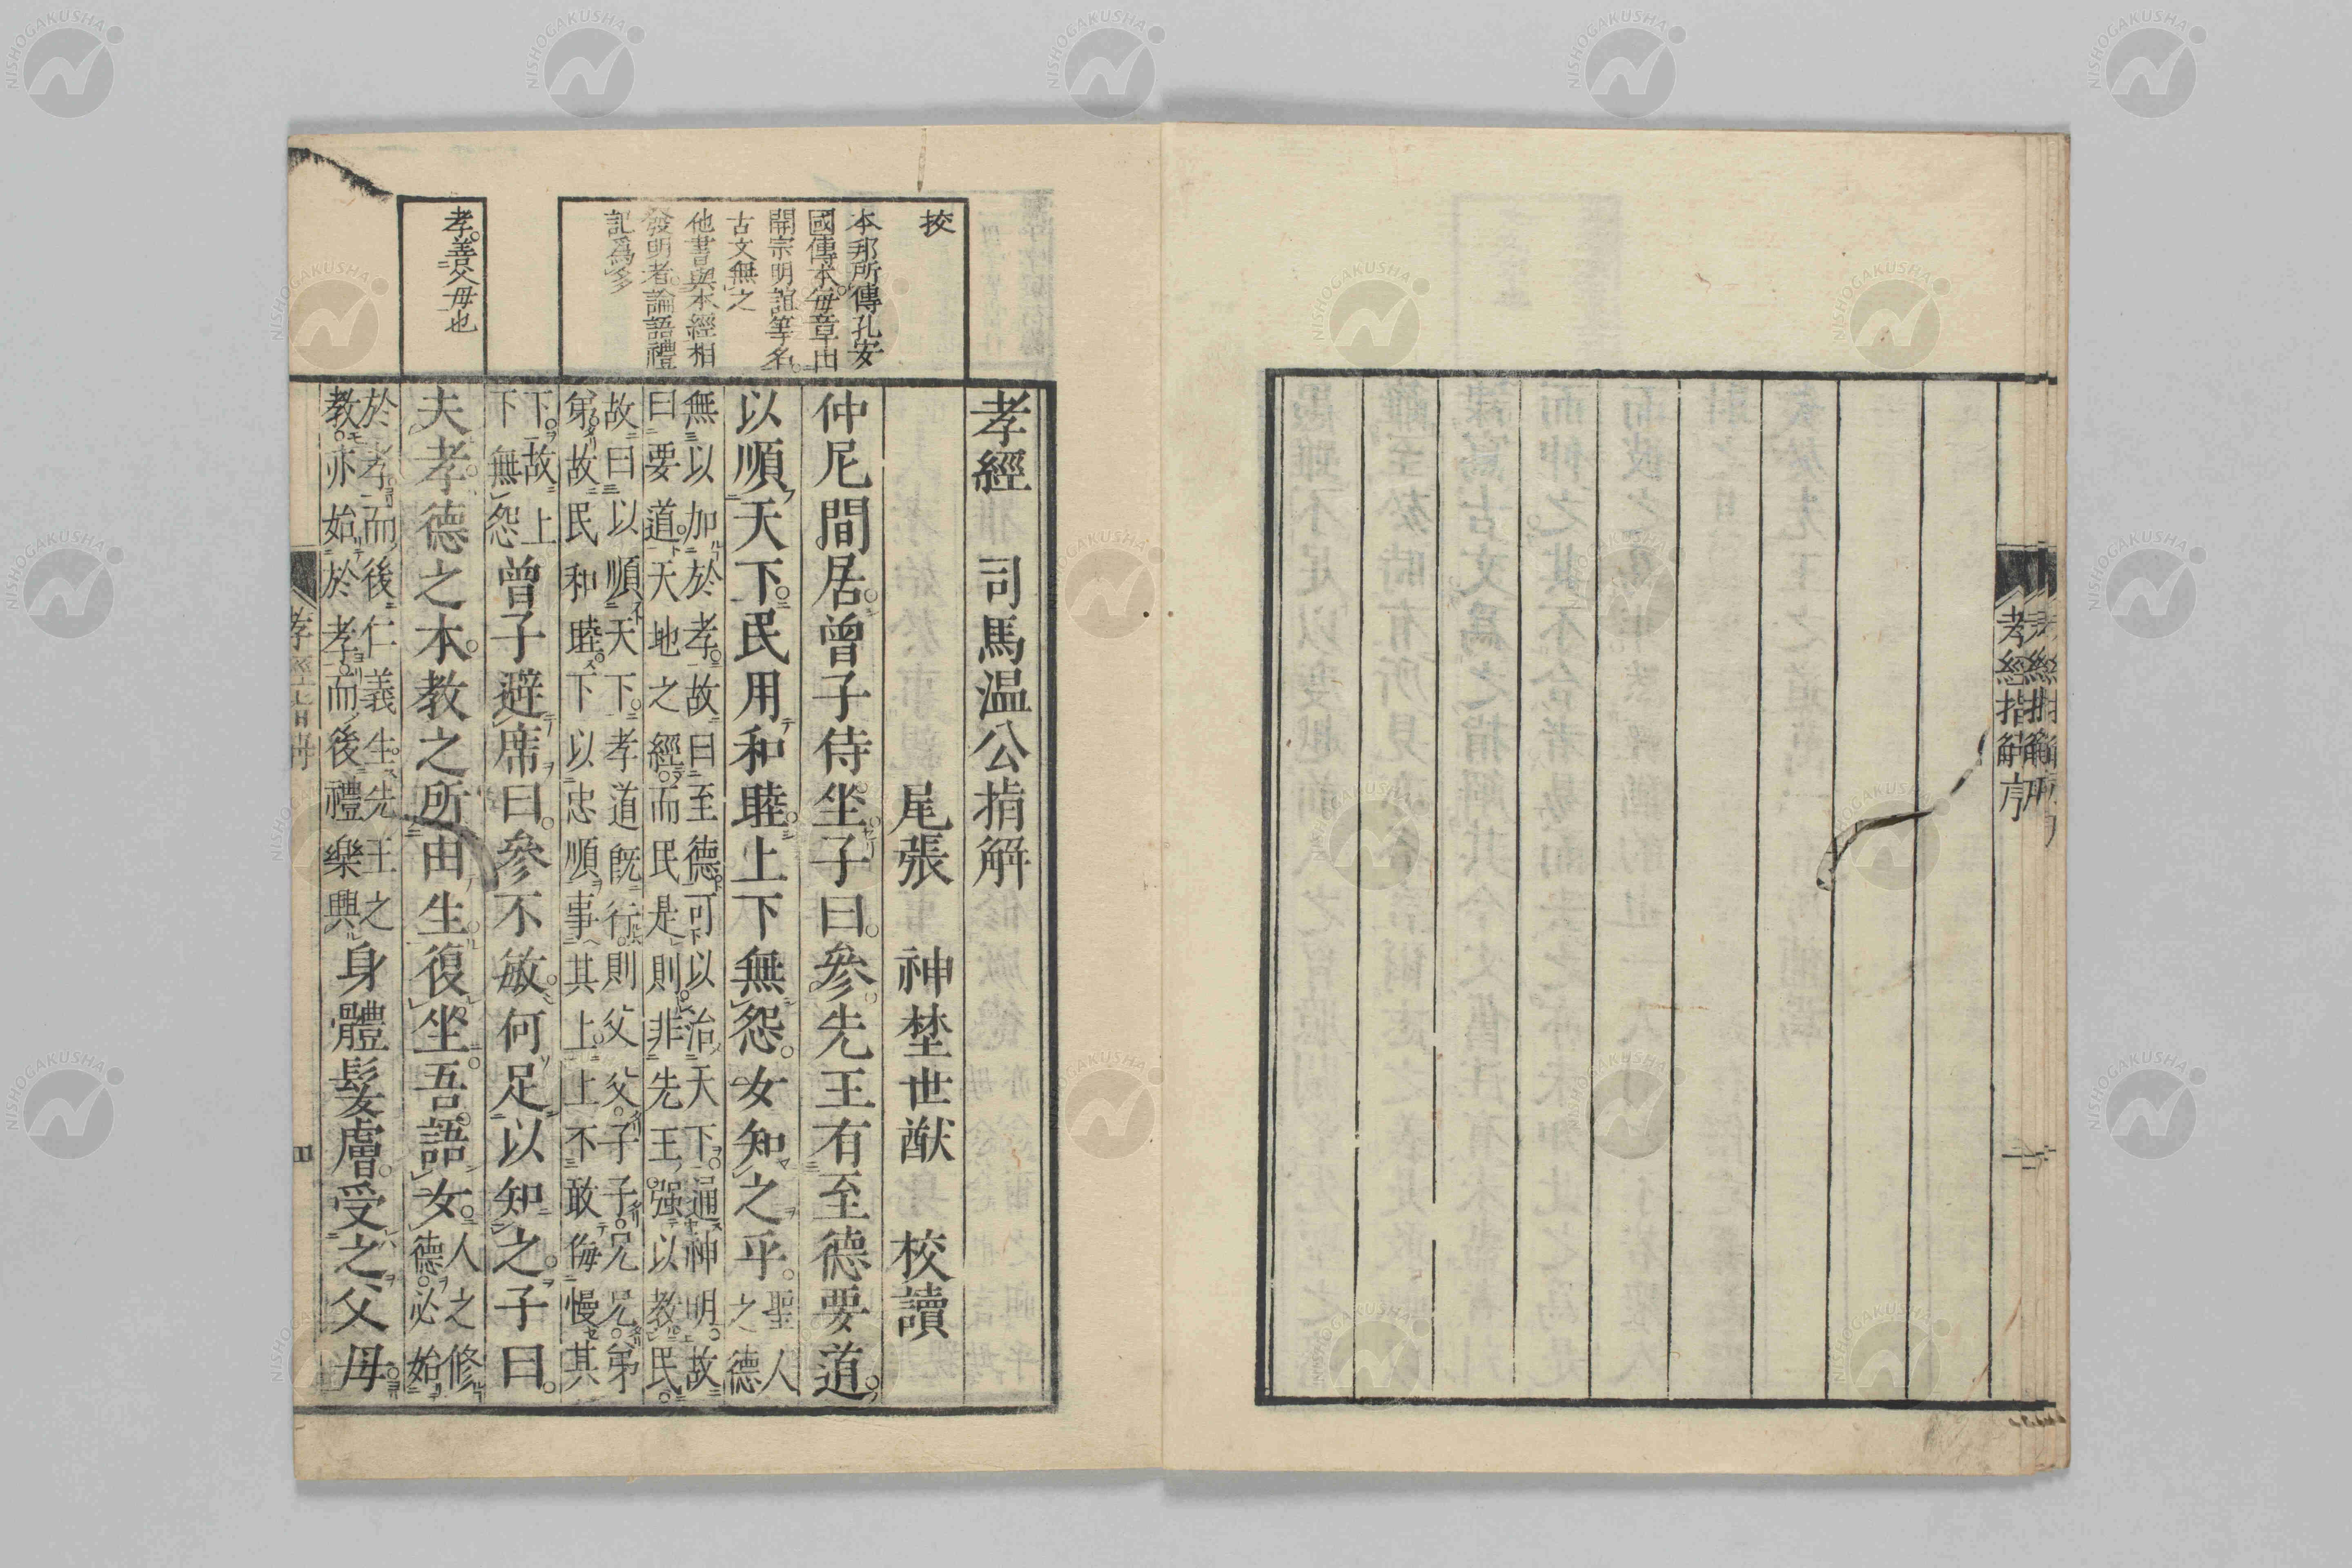 孝經指解序
校
本邦所傳孔安
國傳本每章由
開宗明誼等名
古文無之
他書與本經相
發明者論語禮
記爲多
孝善父母也
孝經 司馬溫公指解
尾張 神埜世猷 校讀
仲尼間居曾子侍坐子曰參先王有至德要道
以順天下民用和睦上下無怨女知之乎
聖人
之德
無以加於孝故曰至德可以治天下通神明故
曰要道天地之經而民是則非先王强以教民
故曰以順天下孝道既行則父父子子兄兄弟
弟故民和睦下以忠順事其上上不敢侮慢其
下故上
下無怨
曾子避席曰參不敏何足以知之子曰
夫孝德之本教之所由生復坐吾語女
人之修
德必始
於孝而後仁義生先王之
教亦始於孝而後禮樂興
身體髮膚受之父母
NISHOGAKUSHA